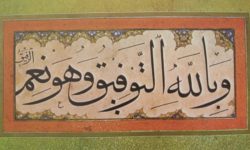 وبالله التوفيق وهو نعم
الرفيق